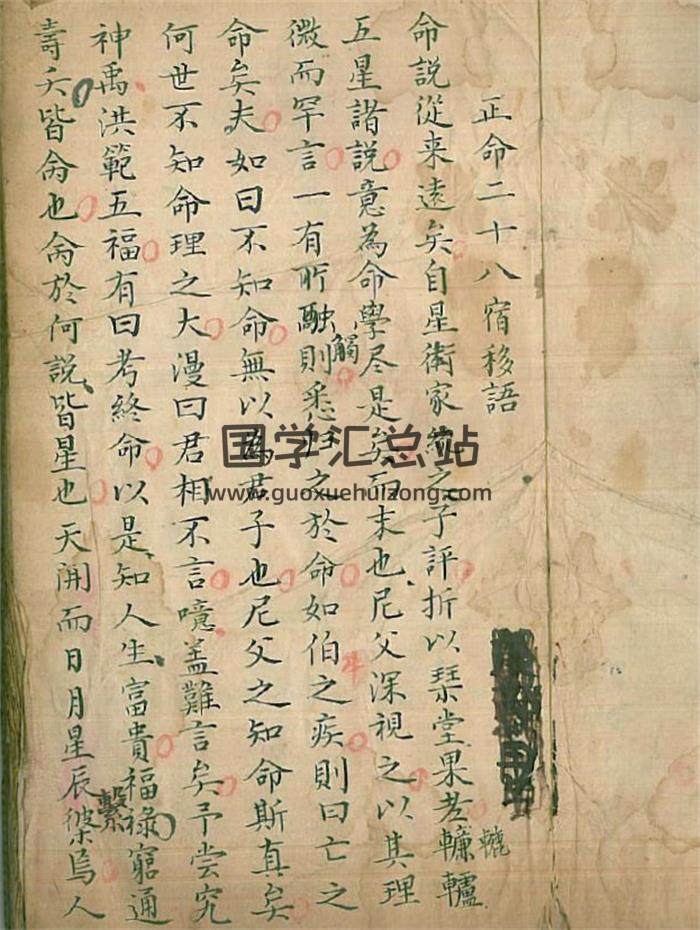 正命二十八宿移語
命說從来遠矣自星術家純之子評折以琹堂果老轆轤
五星諸說意為命學尽是矣而末也尼父深視之以其理
微而罕言一有所融觸則悉歸之於命如伯牛之疾則曰亡之
命矣夫如曰不知命無以為君子也尼父之知命斯真矣
何世不知命理之大漫曰君相不言噫盖難言矣予嘗究
神禹洪範五福有曰考終命以是知人生富貴福祿窮通
壽夭皆命也命於何說皆星也天開而日月星辰繫焉人
国学汇总站
www.guoxuehuizong.com